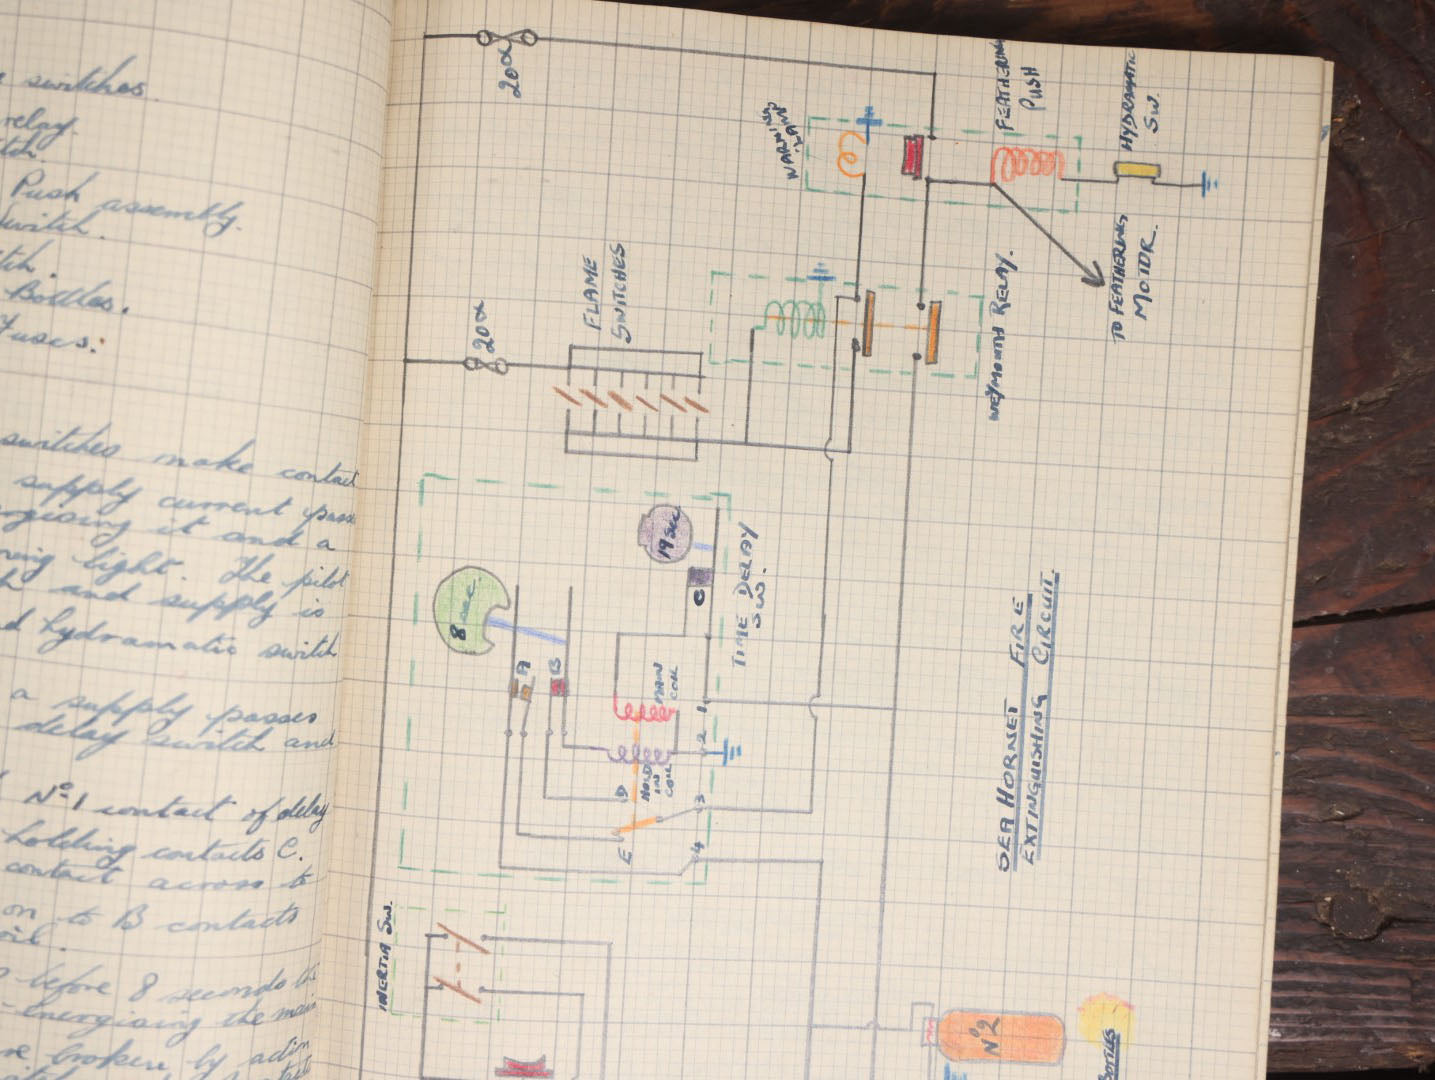 switches
relay.
Push assembly.
switch.
Bottles.
Fuses:
switches make contact
supply current pass
energising it and a
light. The pilot
and supply is
hydramatic switch
a supply passes
delay switch and
Nº1 contact of delay
holding contacts C.
contact across to
on to B contacts
before 8 seconds the
energising the main
broken by action
20a
20a
WARNING
LAMP
FEATHERING
PUSH
HYDRAMATIC
SW.
TO FEATHERING
MOTOR.
WEYMOUTH RELAY.
FLAME
SWITCHES
8 sec.
19 sec
A
B
C
TIME DELAY
SW.
MAIN
COIL
HOLD
IN
COIL
D
E
1
2
3
4
INERTIA SW.
SEA HORNET FIRE
EXTINGUISHING CIRCUIT.
Nº2
BOTTLES